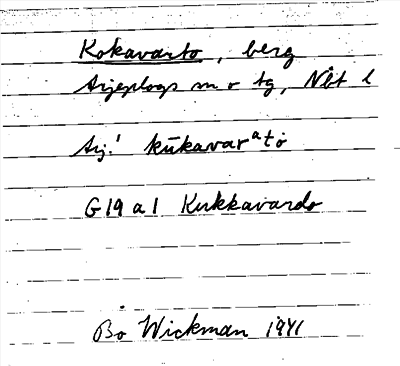 Kokavarto, berg
Arjeplogs sn o tg, Nbt l
Arj.! kūkavarᵃtȯ
G 19 a 1 Kukkavardo
Bo Wickman 1941